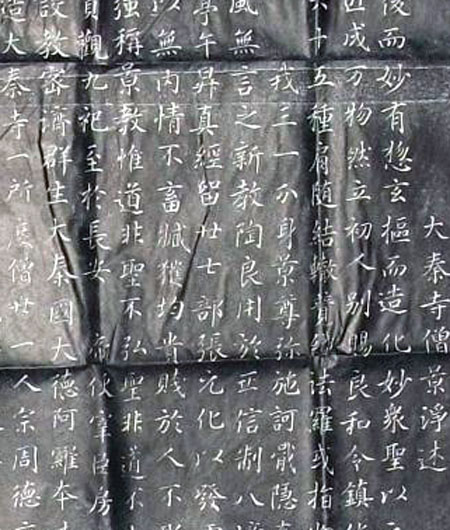 大秦寺僧景淨述
後而妙有惣玄樞而造化妙衆聖以
匠成万物然立初人別賜良和令鎮
六十五種肩随結轍競織法羅或指
我三一分身景尊弥施訶戢隱
風無言之新教陶良用於正信制八
亭午昇真經留廿七部張元化以發
以無内情不畜臧獲均貴賤於人不聚
強稱景教惟道非聖不弘聖非道不
貞觀九祀至於長安 帝使宰臣房
設教密濟群生大秦國大德阿羅本
造大秦寺一所度僧廿一人宗周德